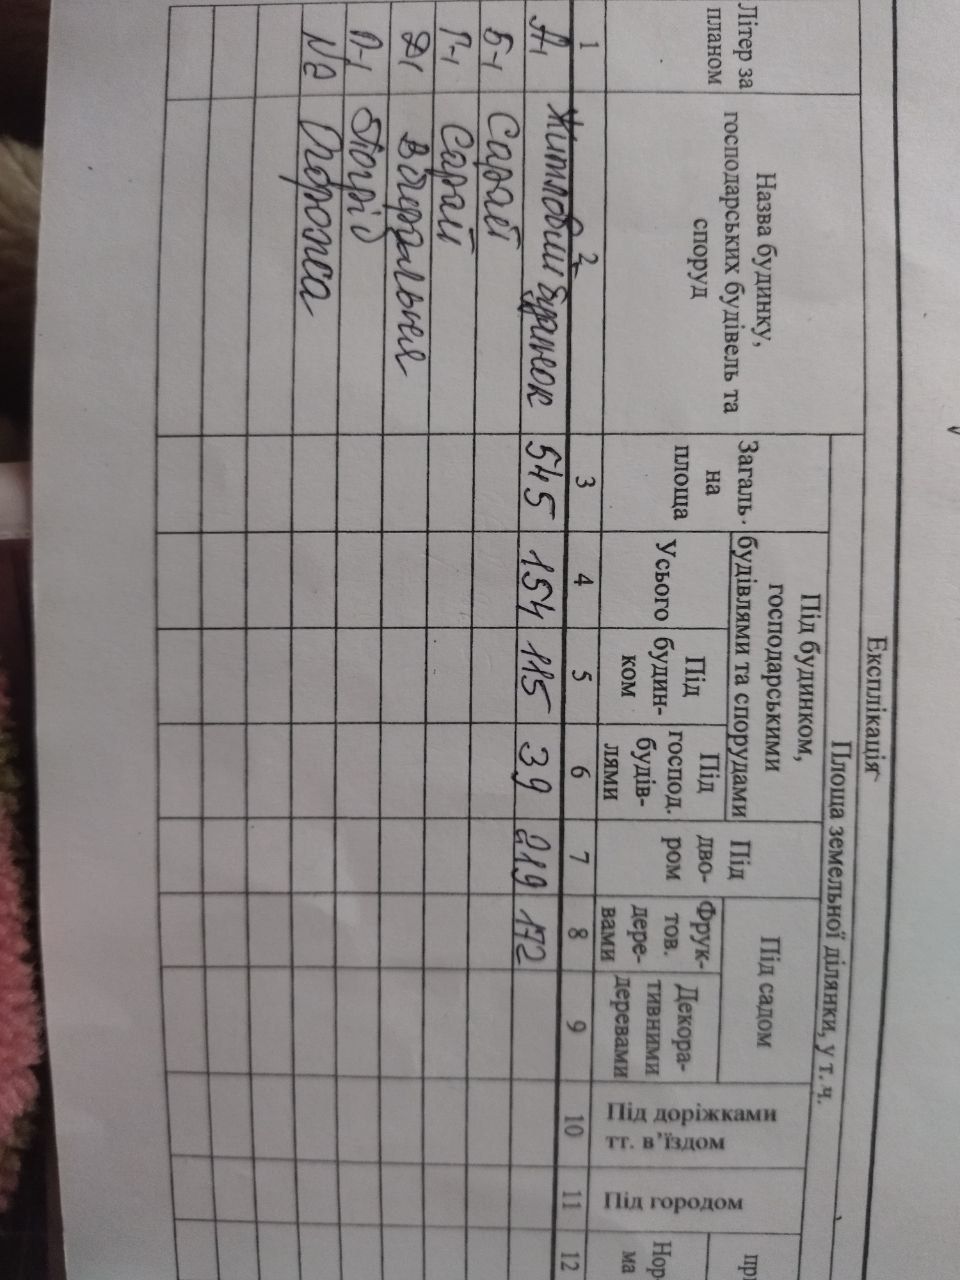 Експлікація
Площа земельної ділянки, у т. ч.
Літер за
планом
Назва будинку,
господарських будівель та
споруд
Загаль-
на
площа
Під будинком,
господарськими
будівлями та спорудами
Усього
Під
будин-
ком
Під
господ.
будів-
лями
Під
дво-
ром
Під садом
Фрук-
тов.
дере-
вами
Декора-
тивними
деревами
Під доріжками
тг. в'їздом
Під городом
при
Нор-
ма
1 2 3 4 5 6 7 8 9 10 11 12
А-1 Житловий будинок 545 154 115 39 219 172
Б-1 Сарай
Г-1 Сарай
Д-1 Вбиральня
П-1 Погріб
№2 Огорожа